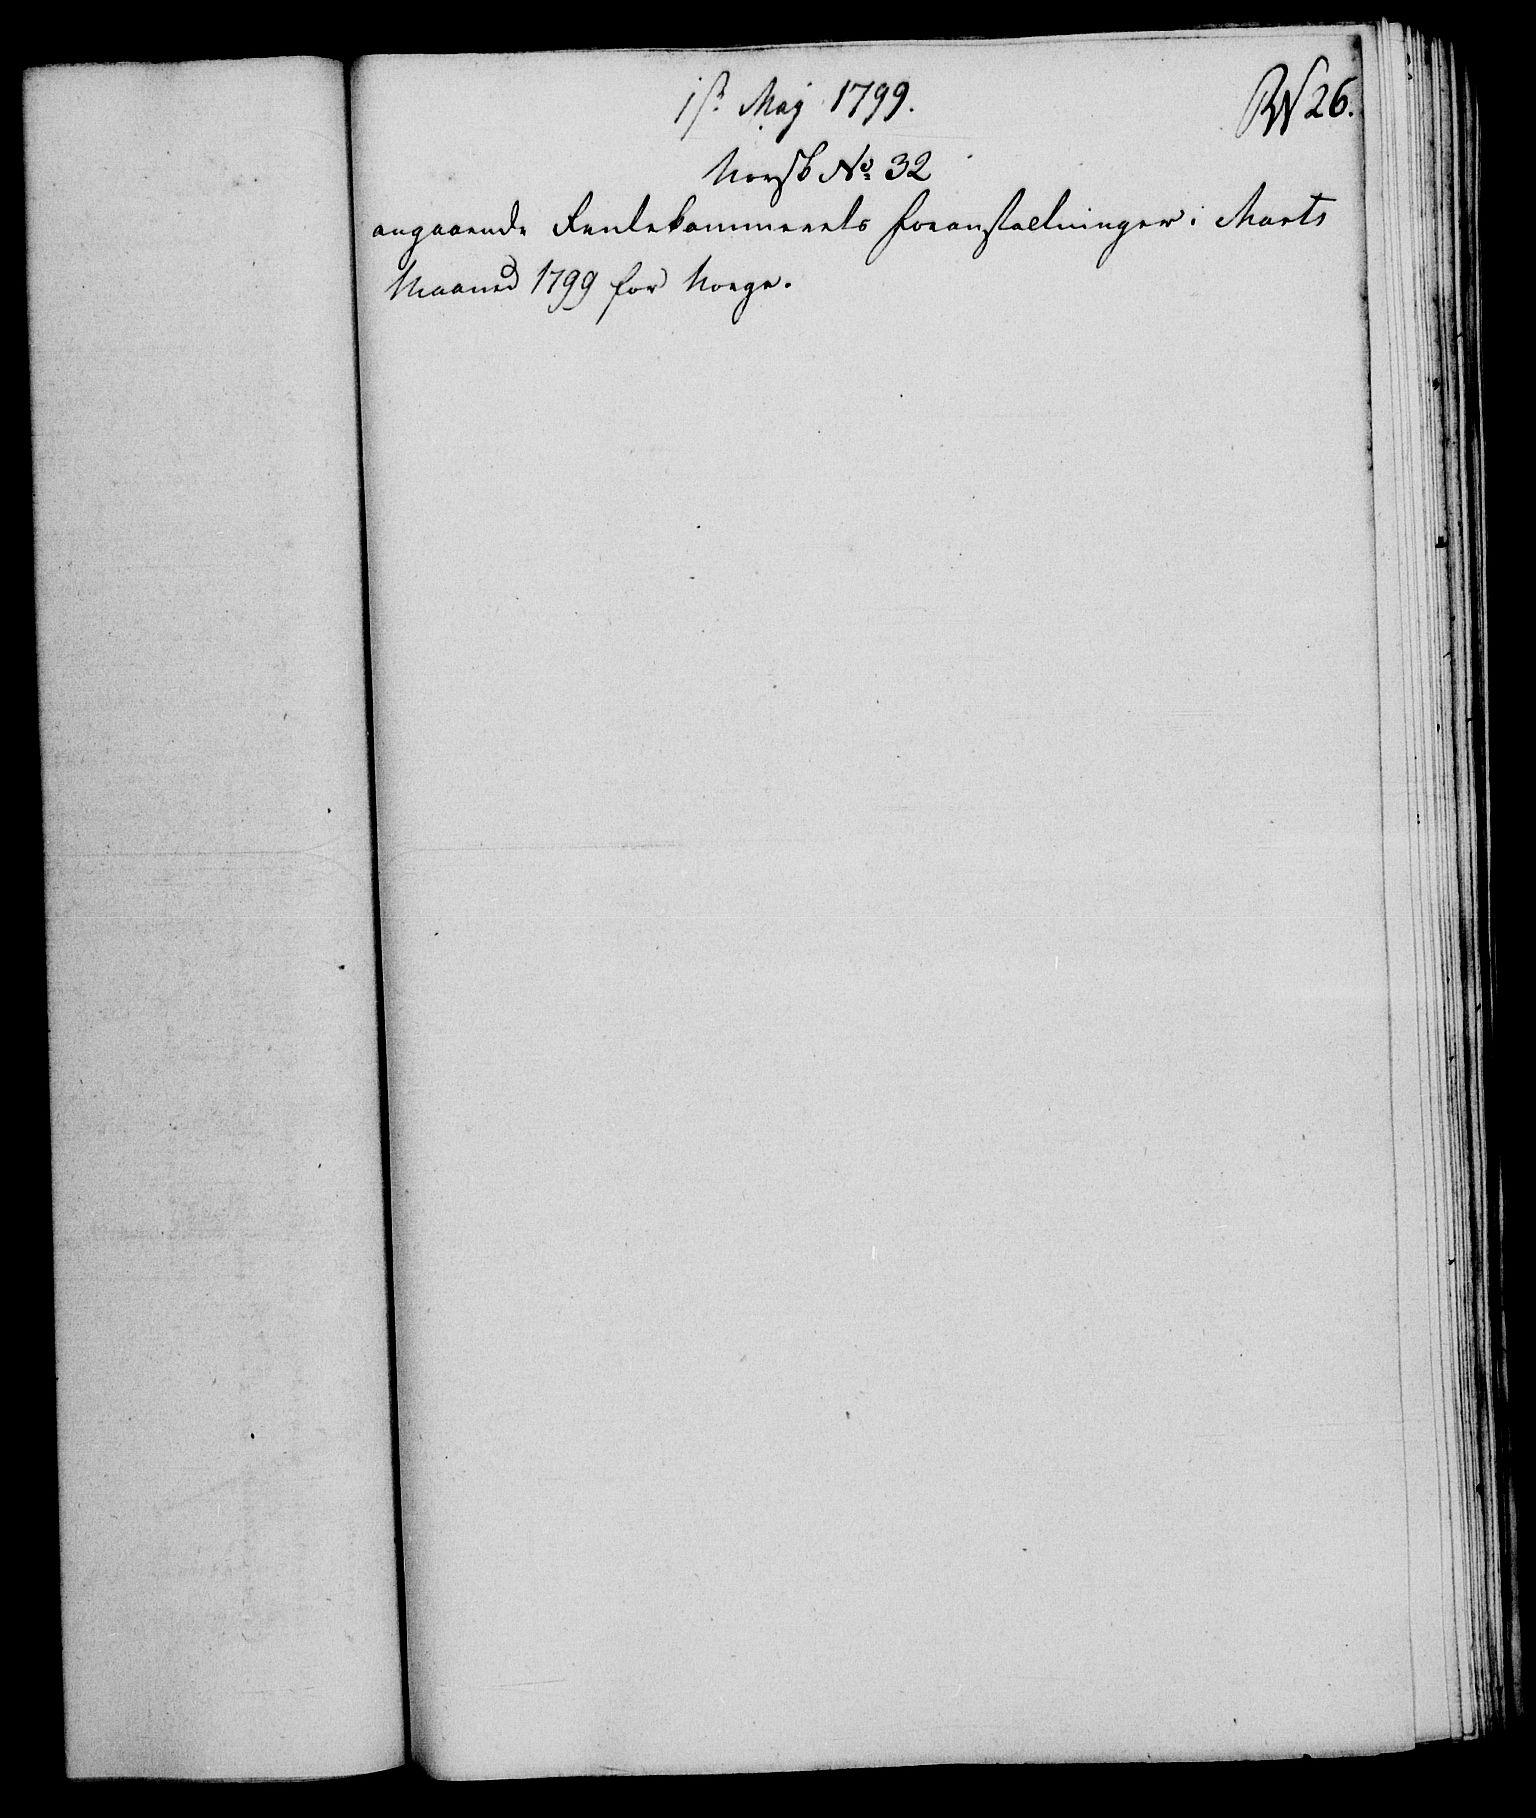 1st May 1799.
No 26.
Norsk No. 32
angaaende Rentekammerets Foranstaltninger i Marts
Maaned 1799 for Norge.